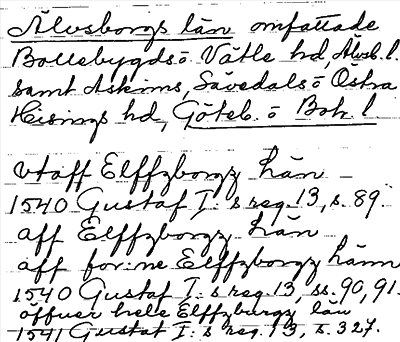 Älvsborgs län omfattade
Bollebygds o Vättle hd, Älvsb. l.
samt Askims, Sävedals o Östra
Hisings hd, Göteb. o Boh. l
vtaff Elffzborgz hän
1540 Gustaf I:s reg. 13, s. 89.
aff Elffzborgz hän
aff for:ne Elffzborgz hänn
1540 Gustaf I:s reg. 13, ss. 90, 91.
öffuer hele Elffzburgz län
1541 Gustaf I:s reg. 13, s. 327.